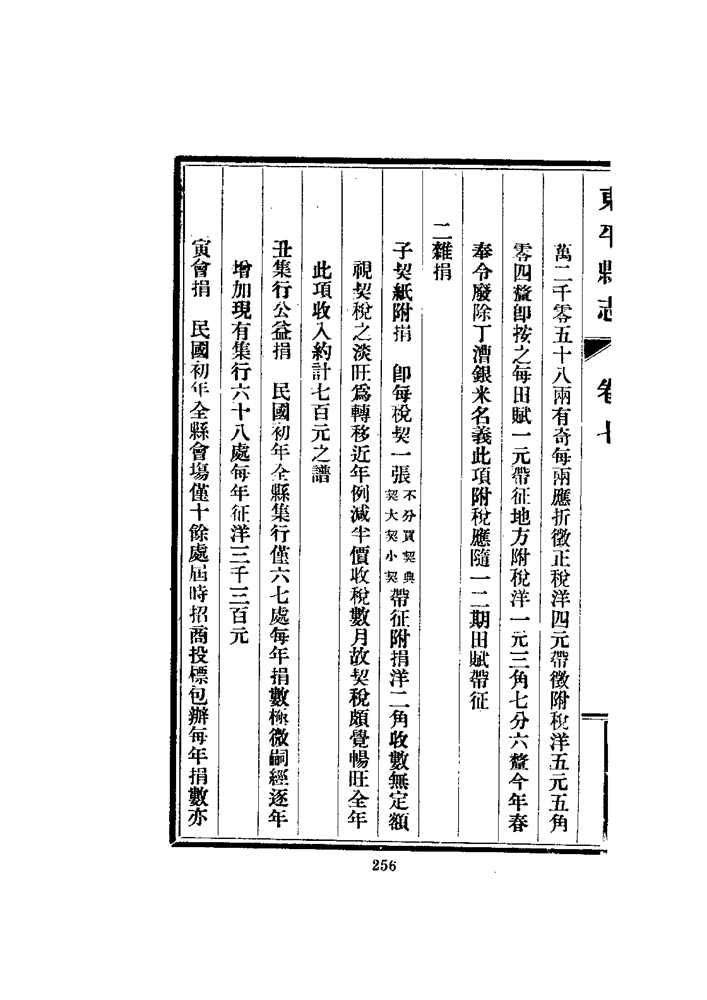 東平縣志 卷七
萬二千零五十八兩有奇每兩應折徵正稅洋四元帶徵附稅洋五元五角
零四釐卽按之每田賦一元帶征地方附稅洋一元三角七分六釐今年春
奉令廢除丁漕銀米名義此項附稅應隨一二期田賦帶征
二雜捐
子契紙附捐 卽每稅契一張不分買契典契大契小契帶征附捐洋二角收數無定額
視契稅之淡旺爲轉移近年例減半價收稅數月故契稅頗覺暢旺全年
此項收入約計七百元之譜
丑集行公益捐 民國初年全縣集行僅六七處每年捐數極微嗣經逐年
增加現有集行六十八處每年征洋三千三百元
寅會捐 民國初年全縣會塲僅十餘處屆時招商投標包辦每年捐數亦
256